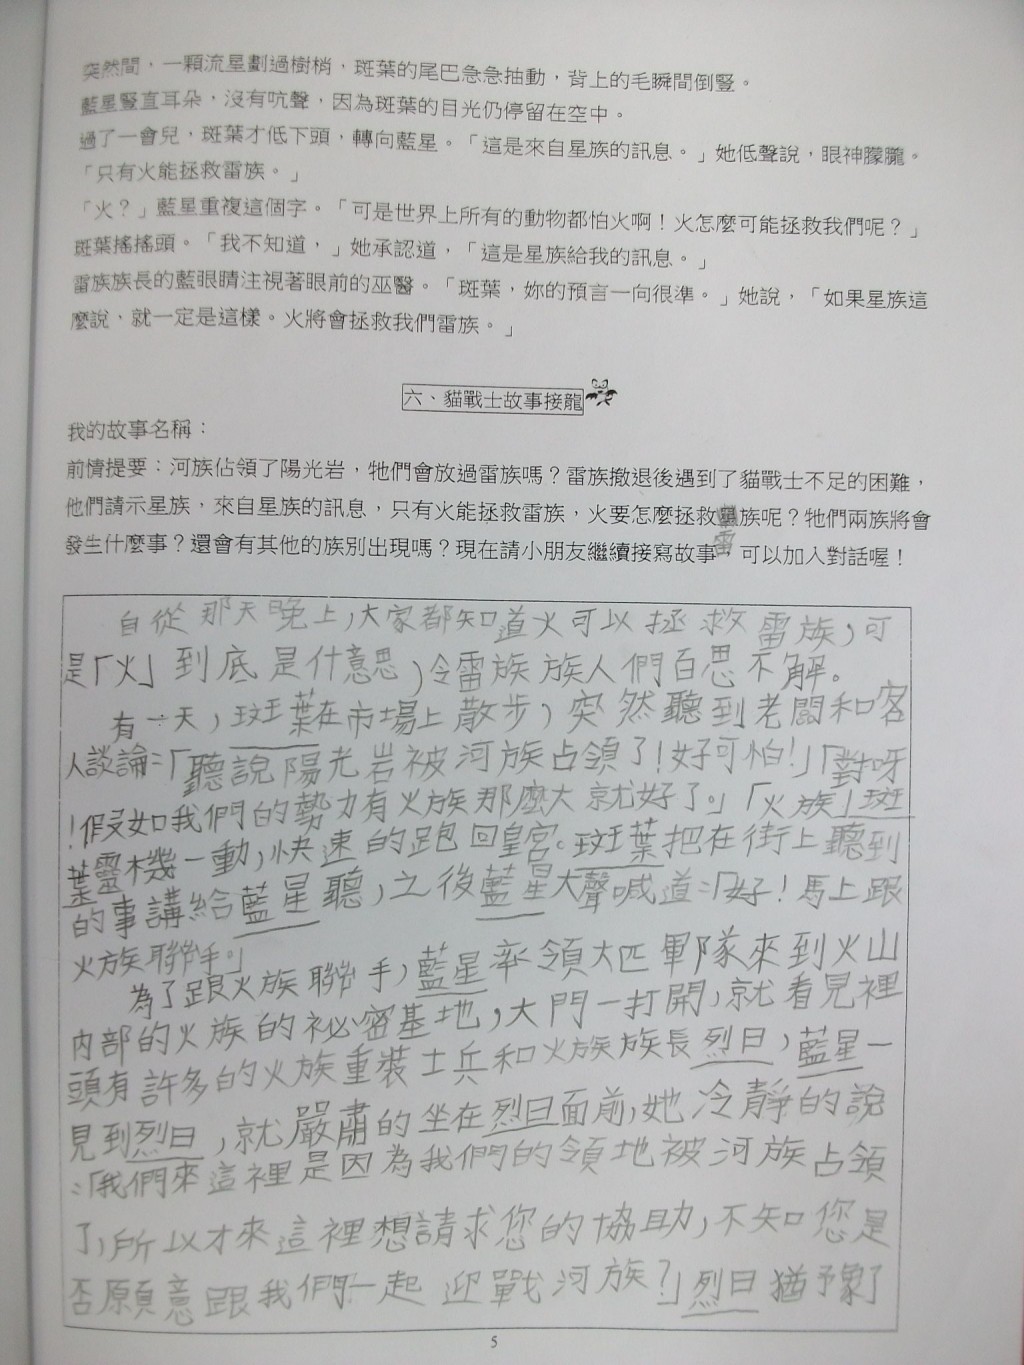 突然間，一顆流星劃過樹梢，斑葉的尾巴急急抽動，背上的毛瞬間倒豎。
藍星豎直耳朵，沒有吭聲，因為斑葉的目光仍停留在空中。
過了一會兒，斑葉才低下頭，轉向藍星。「這是來自星族的訊息。」她低聲說，眼神朦朧。
「只有火能拯救雷族。」
「火？」藍星重複這個字。「可是世界上所有的動物都怕火啊！火怎麼可能拯救我們呢？」
斑葉搖搖頭。「我不知道，」她承認道，「這是星族給我的訊息。」
雷族族長的藍眼睛注視著眼前的巫醫。「斑葉，妳的預言一向很準。」她說，「如果星族這
麼說，就一定是這樣。火將會拯救我們雷族。」
六、貓戰士故事接龍
我的故事名稱：
前情提要：河族佔領了陽光岩，牠們會放過雷族嗎？雷族撤退後遇到了貓戰士不足的困難，
他們請示星族，來自星族的訊息，只有火能拯救雷族，火要怎麼拯救星族呢？牠們兩族將會
雷
發生什麼事？還會有其他的族別出現嗎？現在請小朋友繼續接寫故事，可以加入對話喔！
自從那天晚上，大家都知道火可以拯救雷族，可
是「火」到底是什意思，令雷族族人們百思不解。
有一天，斑葉在市場上散步，突然聽到老闆和客
人談論：「聽說陽光岩被河族占領了！好可怕！」「對呀
！假如我們的勢力有火族那麼大就好了。」「火族」斑
葉靈機一動，快速的跑回皇宮。斑葉把在街上聽到
的事講給藍星聽，之後藍星大聲喊道：「好！馬上跟
火族聯手。」
為了跟火族聯手，藍星率領大匹軍隊來到火山
內部的火族的祕密基地，大門一打開，就看見裡
頭有許多的火族重裝士兵和火族族長烈日，藍星一
見到烈日，就嚴肅的坐在烈日面前，她冷靜的說
：「我們來這裡是因為我們的領地被河族占領
了，所以才來這裡想請求您的協助，不知您是
否願意跟我們一起迎戰河族？」烈日猶豫了
5